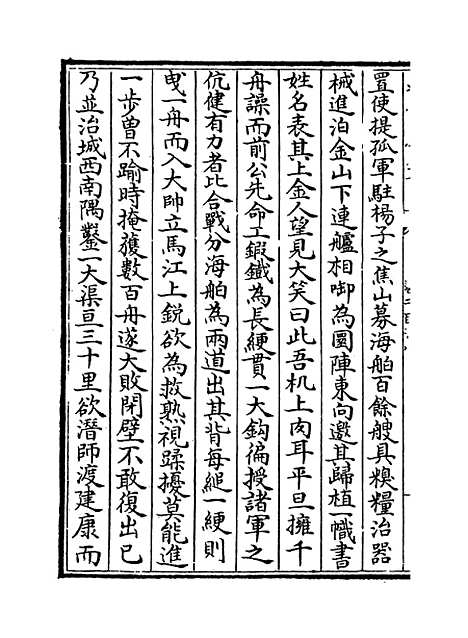 置使提孤軍駐楊子之焦山募海舶百餘艘具糗糧治器
械進泊金山下連艫相啣為圜陣東向邀其歸植一幟書
姓名表其上金人望見大笑曰此吾机上肉耳平旦擁千
舟譟而前公先命工鍜鐵為長綆貫一大鈎徧授諸軍之
伉健有力者比合戰分海舶為兩道出其背每縋一綆則
曵一舟而入大帥立馬江上銳欲為救熟視蹂擾莫能進
一步曾不踰時掩獲數百舟遂大敗閉壁不敢復出已
乃並治城西南隅鑿一大渠亘三十里欲潛師渡建康而